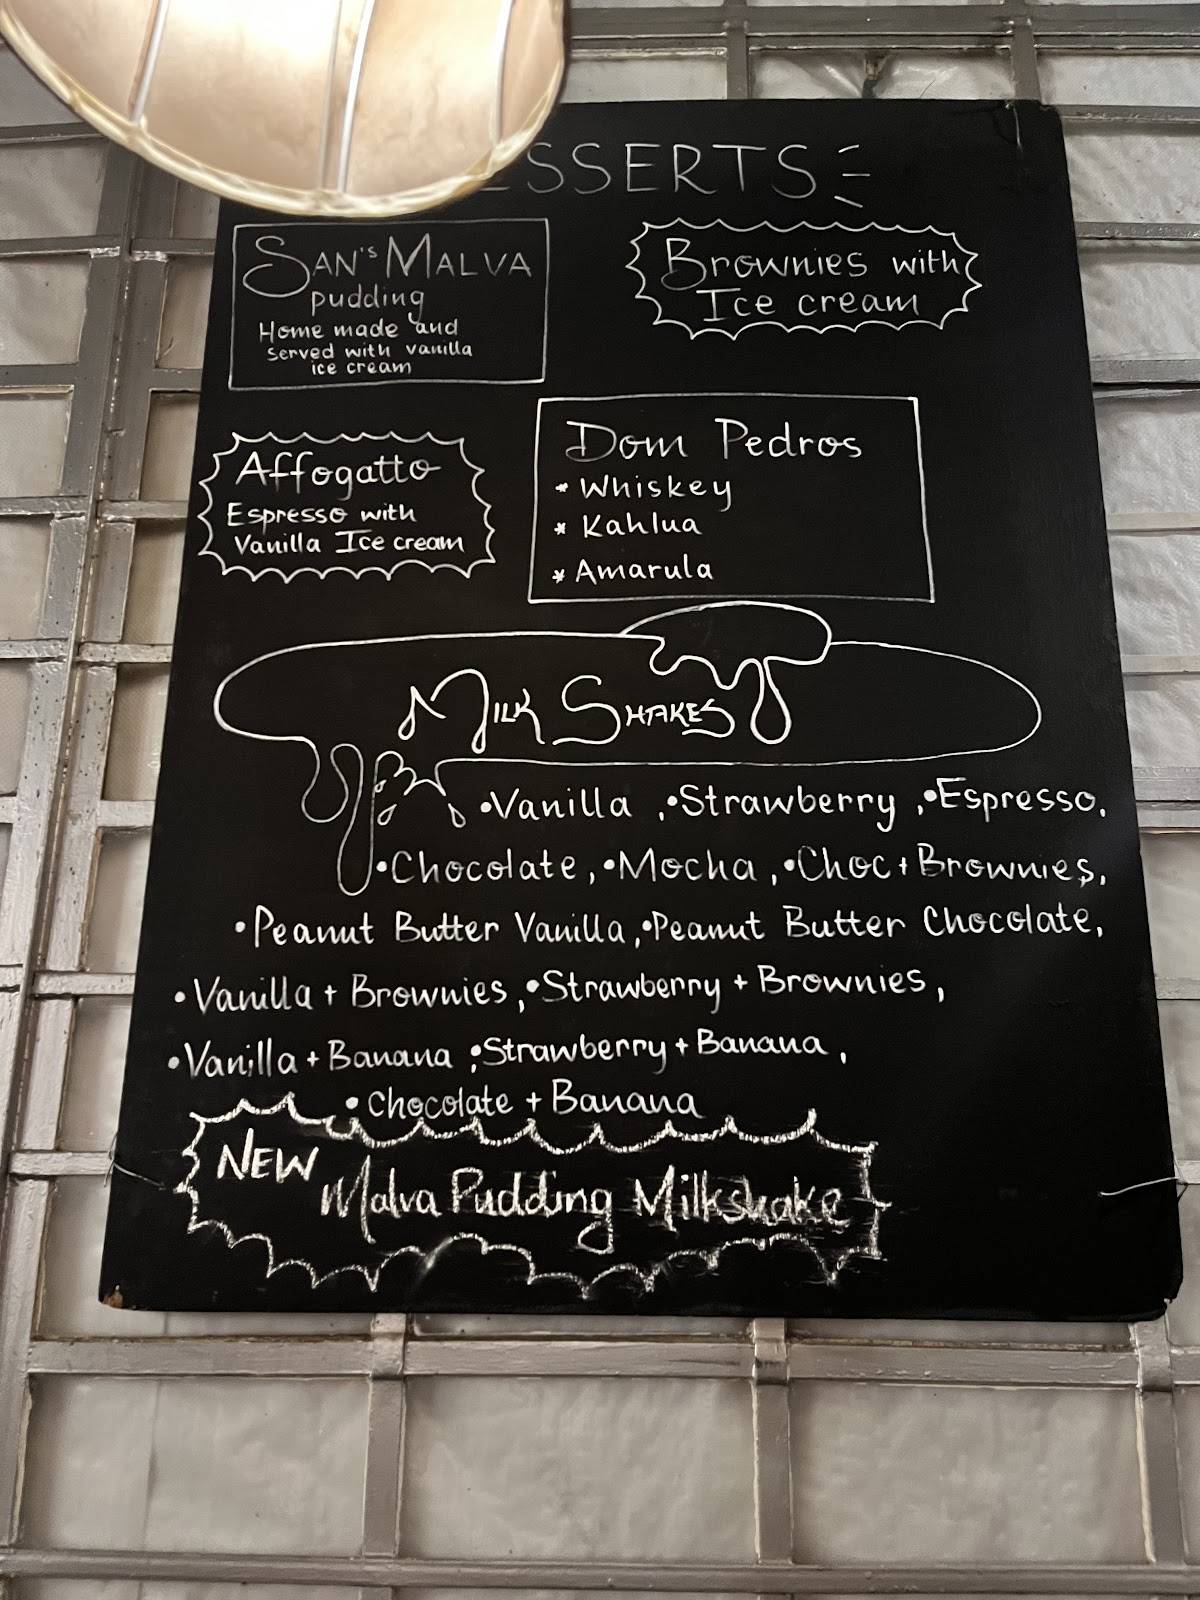 ESSERTS
SAN'S MALVA
pudding
Home made and
served with vanilla
ice cream
BROWNIES with
Ice cream
Affogatto
Espresso with
Vanilla Ice cream
Dom Pedros
* Whiskey
* Kahlua
* Amarula
MILK SHAKES
•Vanilla ,•Strawberry ,•Espresso,
•Chocolate,•Mocha ,•Choc + Brownies,
•Peanut Butter Vanilla,•Peanut Butter Chocolate,
•Vanilla + Brownies,•Strawberry + Brownies,
•Vanilla + Banana ,•Strawberry + Banana ,
•Chocolate + Banana
NEW
Malva Pudding Milkshake